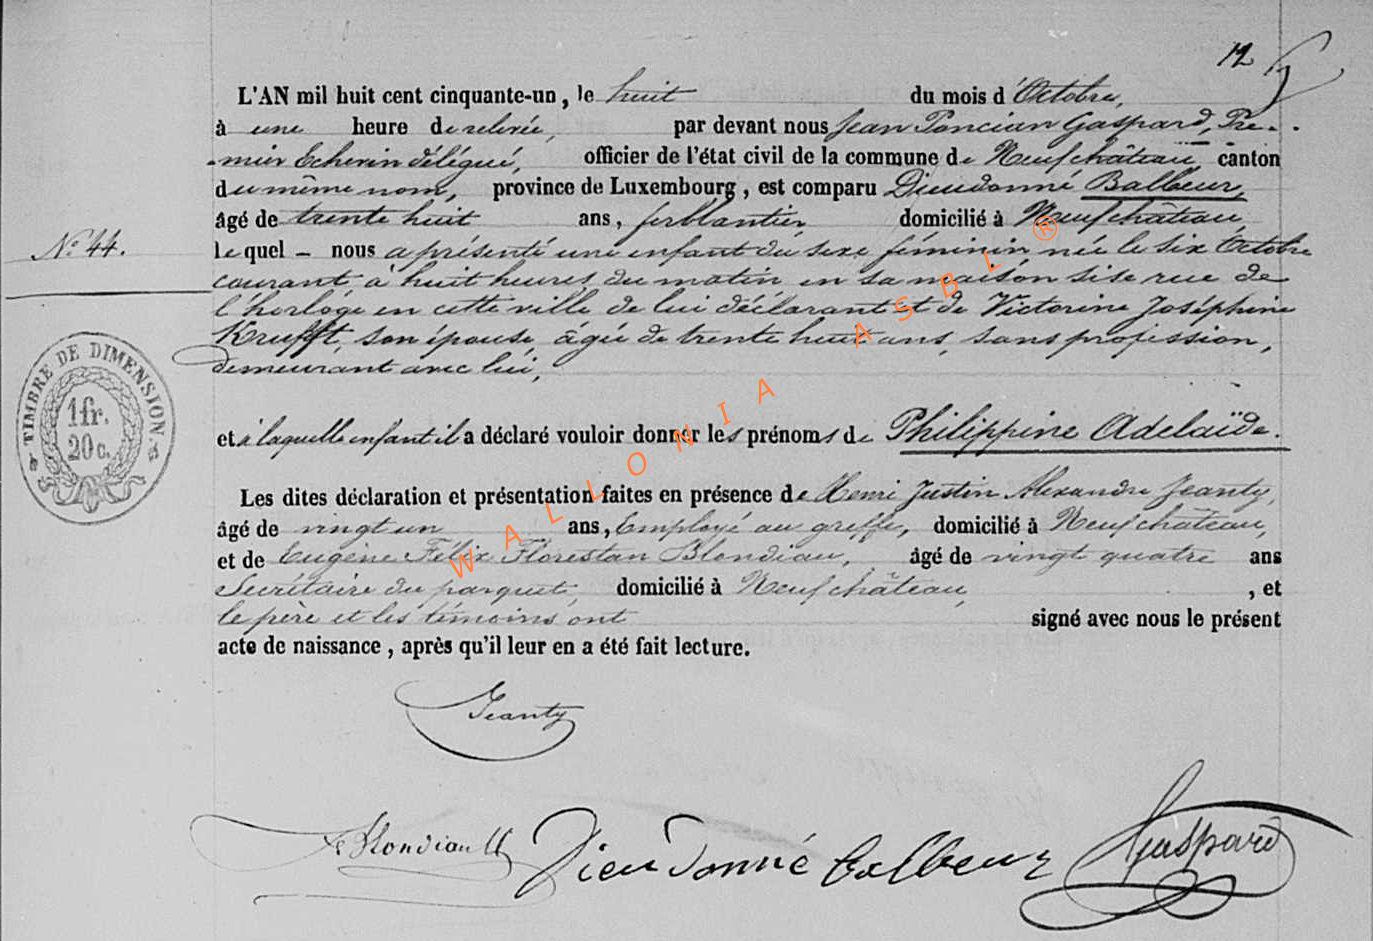 12
L'AN mil huit cent cinquante-un, le huit du mois d'Octobre,
à une heure de relevée, par devant nous Jean Poncian Gaspard, Pre-
-mier Echevin délégué, officier de l'état civil de la commune de Neufchâteau, canton
du même nom, province de Luxembourg, est comparu Dieudonné Balbeur,
âgé de trente huit ans, ferblantier, domicilié à Neufchâteau
N° 44.
lequel – nous a présenté une enfant du sexe féminin, née le six Octobre
courant à huit heures du matin en sa maison sise rue de
l'horloge en cette ville de lui déclarant et de Victorine Joséphine
Krufft, son épouse, âgée de trente huit ans, sans profession,
demeurant avec lui,
TIMBRE DE DIMENSION.
1fr.
20c.
et à laquelle enfant il a déclaré vouloir donner les prénoms de Philippine Adelaïde.
Les dites déclaration et présentation faites en présence de Henri Justin Alexandre Jeanty,
âgé de vingt un ans, Employé au greffe, domicilié à Neufchâteau,
et de Eugène Félix Florestan Blondiau, âgé de vingt quatre ans
Secrétaire du parquet, domicilié à Neufchâteau, , et
le père et les témoins ont signé avec nous le présent
acte de naissance, après qu'il leur en a été fait lecture.
WALLONIA ASBL ®
Jeanty
Blondiau
Dieudonné balbeur
Gaspard